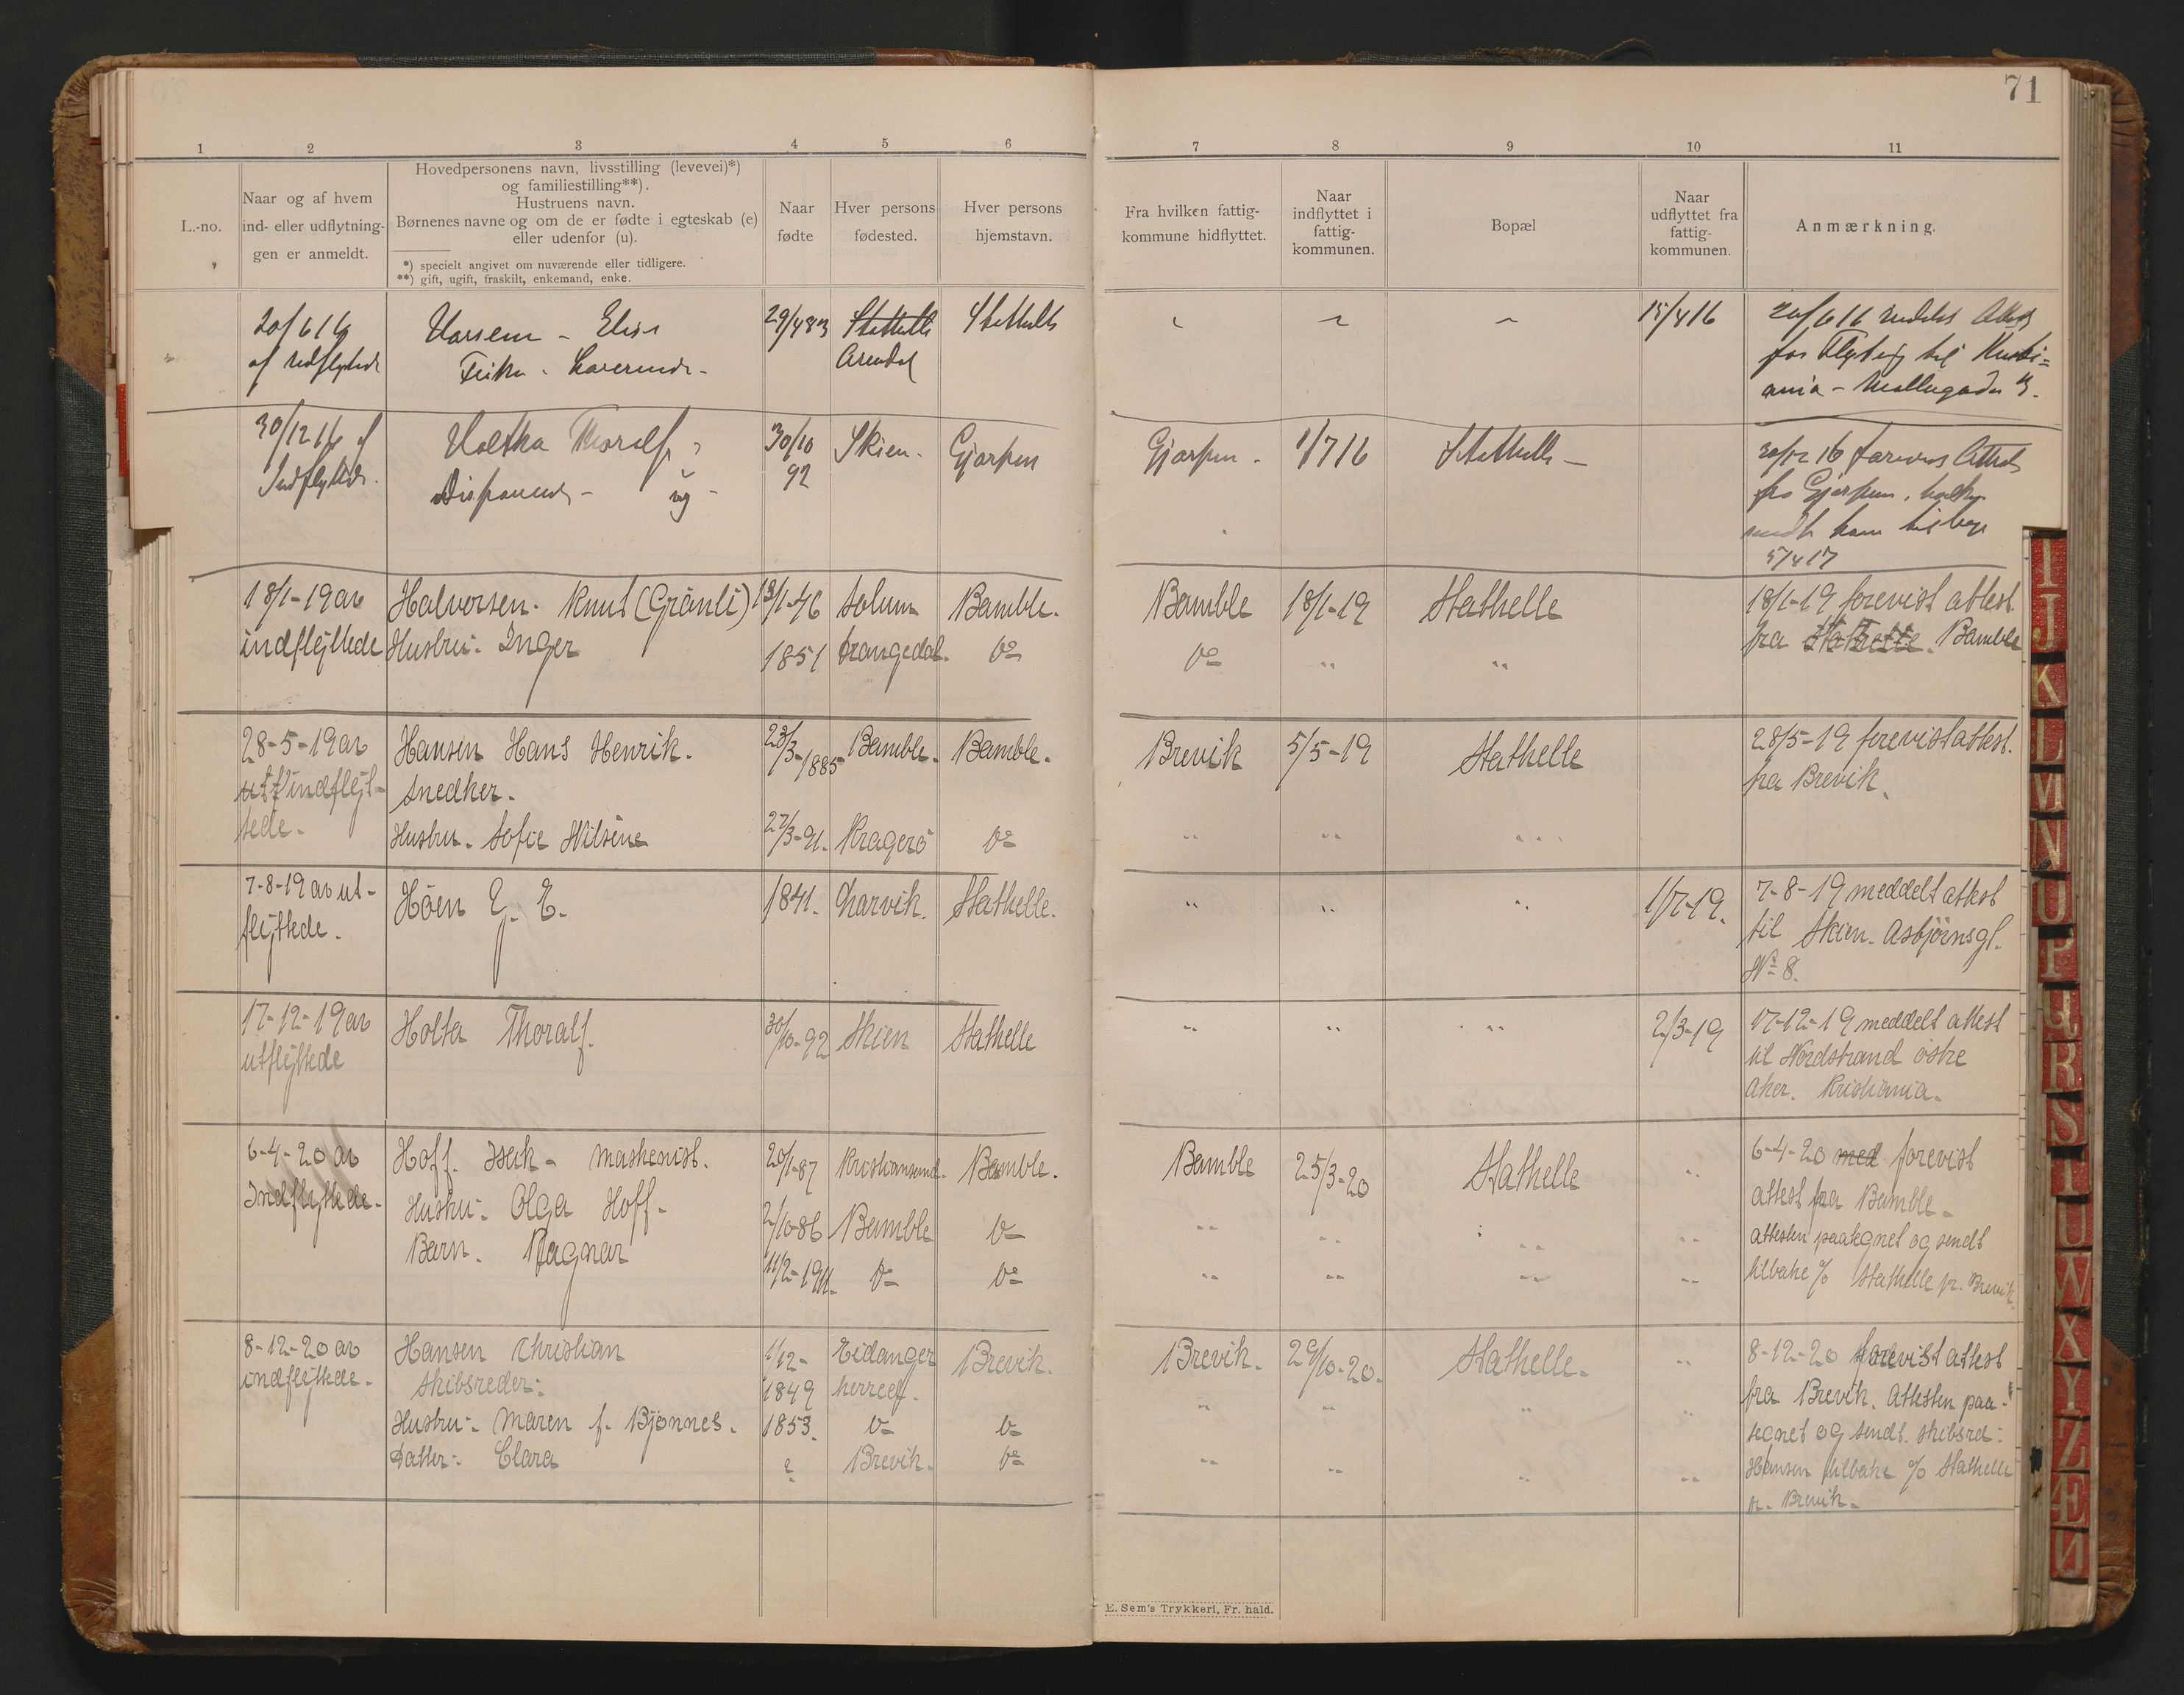 71
1 2 3 4 5 6 7 8 9 10 11
L.-no.
Naar og af hvem
ind- eller udflytnin-
gen er anmeldt.
Hovedpersonens navn, livsstilling (levevei)*)
og familiestilling**).
Hustruens navn.
Børnenes navne og om de er fødte i egteskab (e)
eller udenfor (u).
*) specielt angivet om nuværende eller tidligere.
**) gift, ugift, fraskilt, enkemand, enke.
Naar
fødte
Hver persons
fødested.
Hver persons
hjemstavn.
Fra hvilken fattig-
kommune hidflyttet.
Naar
indflyttet i
fattig-
kommunen.
Bopæl
Naar
udflyttet fra
fattig-
kommunen.
Anmærkning.
20/6 16 29/4 83 Stathelle Stathelle 15/4 16 20/6 16
af udflyttede Arendal
30/12 16 af Thoralf 30/10 Skien. Gjerpen Gjerpen. 1/7 16 Stathelle
Indflyttede. ug 92
fra Gjerpen.
5/4 17
18/1-19 av Halvorsen. Knut (Grönli) 13/1-46 Solum Bamble. Bamble 18/1-19 Stathelle 18/1-19 forevist attest.
indflyttede Hustru: Inger 1851 Drangedal. Do Do " " fra Stathelle. Bamble
28-5-19 av Hansen Hans Henrik. 23/3-1885 Bamble. Bamble. Brevik 5/5-19 Stathelle 28/5-19 forevist attest.
utf indflyt- Snedker. fra Brevik.
tede.
Hustru. Sofie Nilsine 27/3-91. Kragerö Do " " "
7-8-19 av ut- Höen E. E. 1841. Larvik. Stathelle. " " " 1/7-19. 7-8-19 meddelt attest
flyttede. til Skien. Asbjörnsgt.
No 8.
17-12-19 av Holta Thoralf. 30/10-92 Skien Stathelle " " " 2/3-19 17-12-19 meddelt attest
utflyttede til Nordstrand östre
Aker. Kristiania.
6-4-20 av Hoff. Isak - Maskenist. 20/1-87 Kristiansund. Bamble. Bamble 25/3-20 Stathelle " 6-4-20 med forevist
Indflyttede. attest fra Bamble.
Hustru: Olga Hoff. 2/10-86 Bamble Do " " " " attesten paategnet og sendt
Barn. Ragnar 11/2-1911. Do Do " " " " tilbake % Stathelle pr. Brevik.
8-12-20 av Hansen Christian 1/12- Eidanger Brevik. Brevik. 29/10-20. Stathelle. " 8-12-20 forevist attest
indflyttede. Skibsreder: 1849 herred. fra Brevik. Attesten paa-
Hustru: Maren f. Bjönnes. 1853. Do Do " " " " tegnet og sendt. skibsred:
Datter: Clara ? Brevik. Do " " " " Hansen tilbake % Stathelle
pr. Brevik.
E. Sem's Trykkeri, Fr. hald.
I
J
K
L
M
N
O
P
Q
R
S
T
U
W
X
Y
Z
Æ